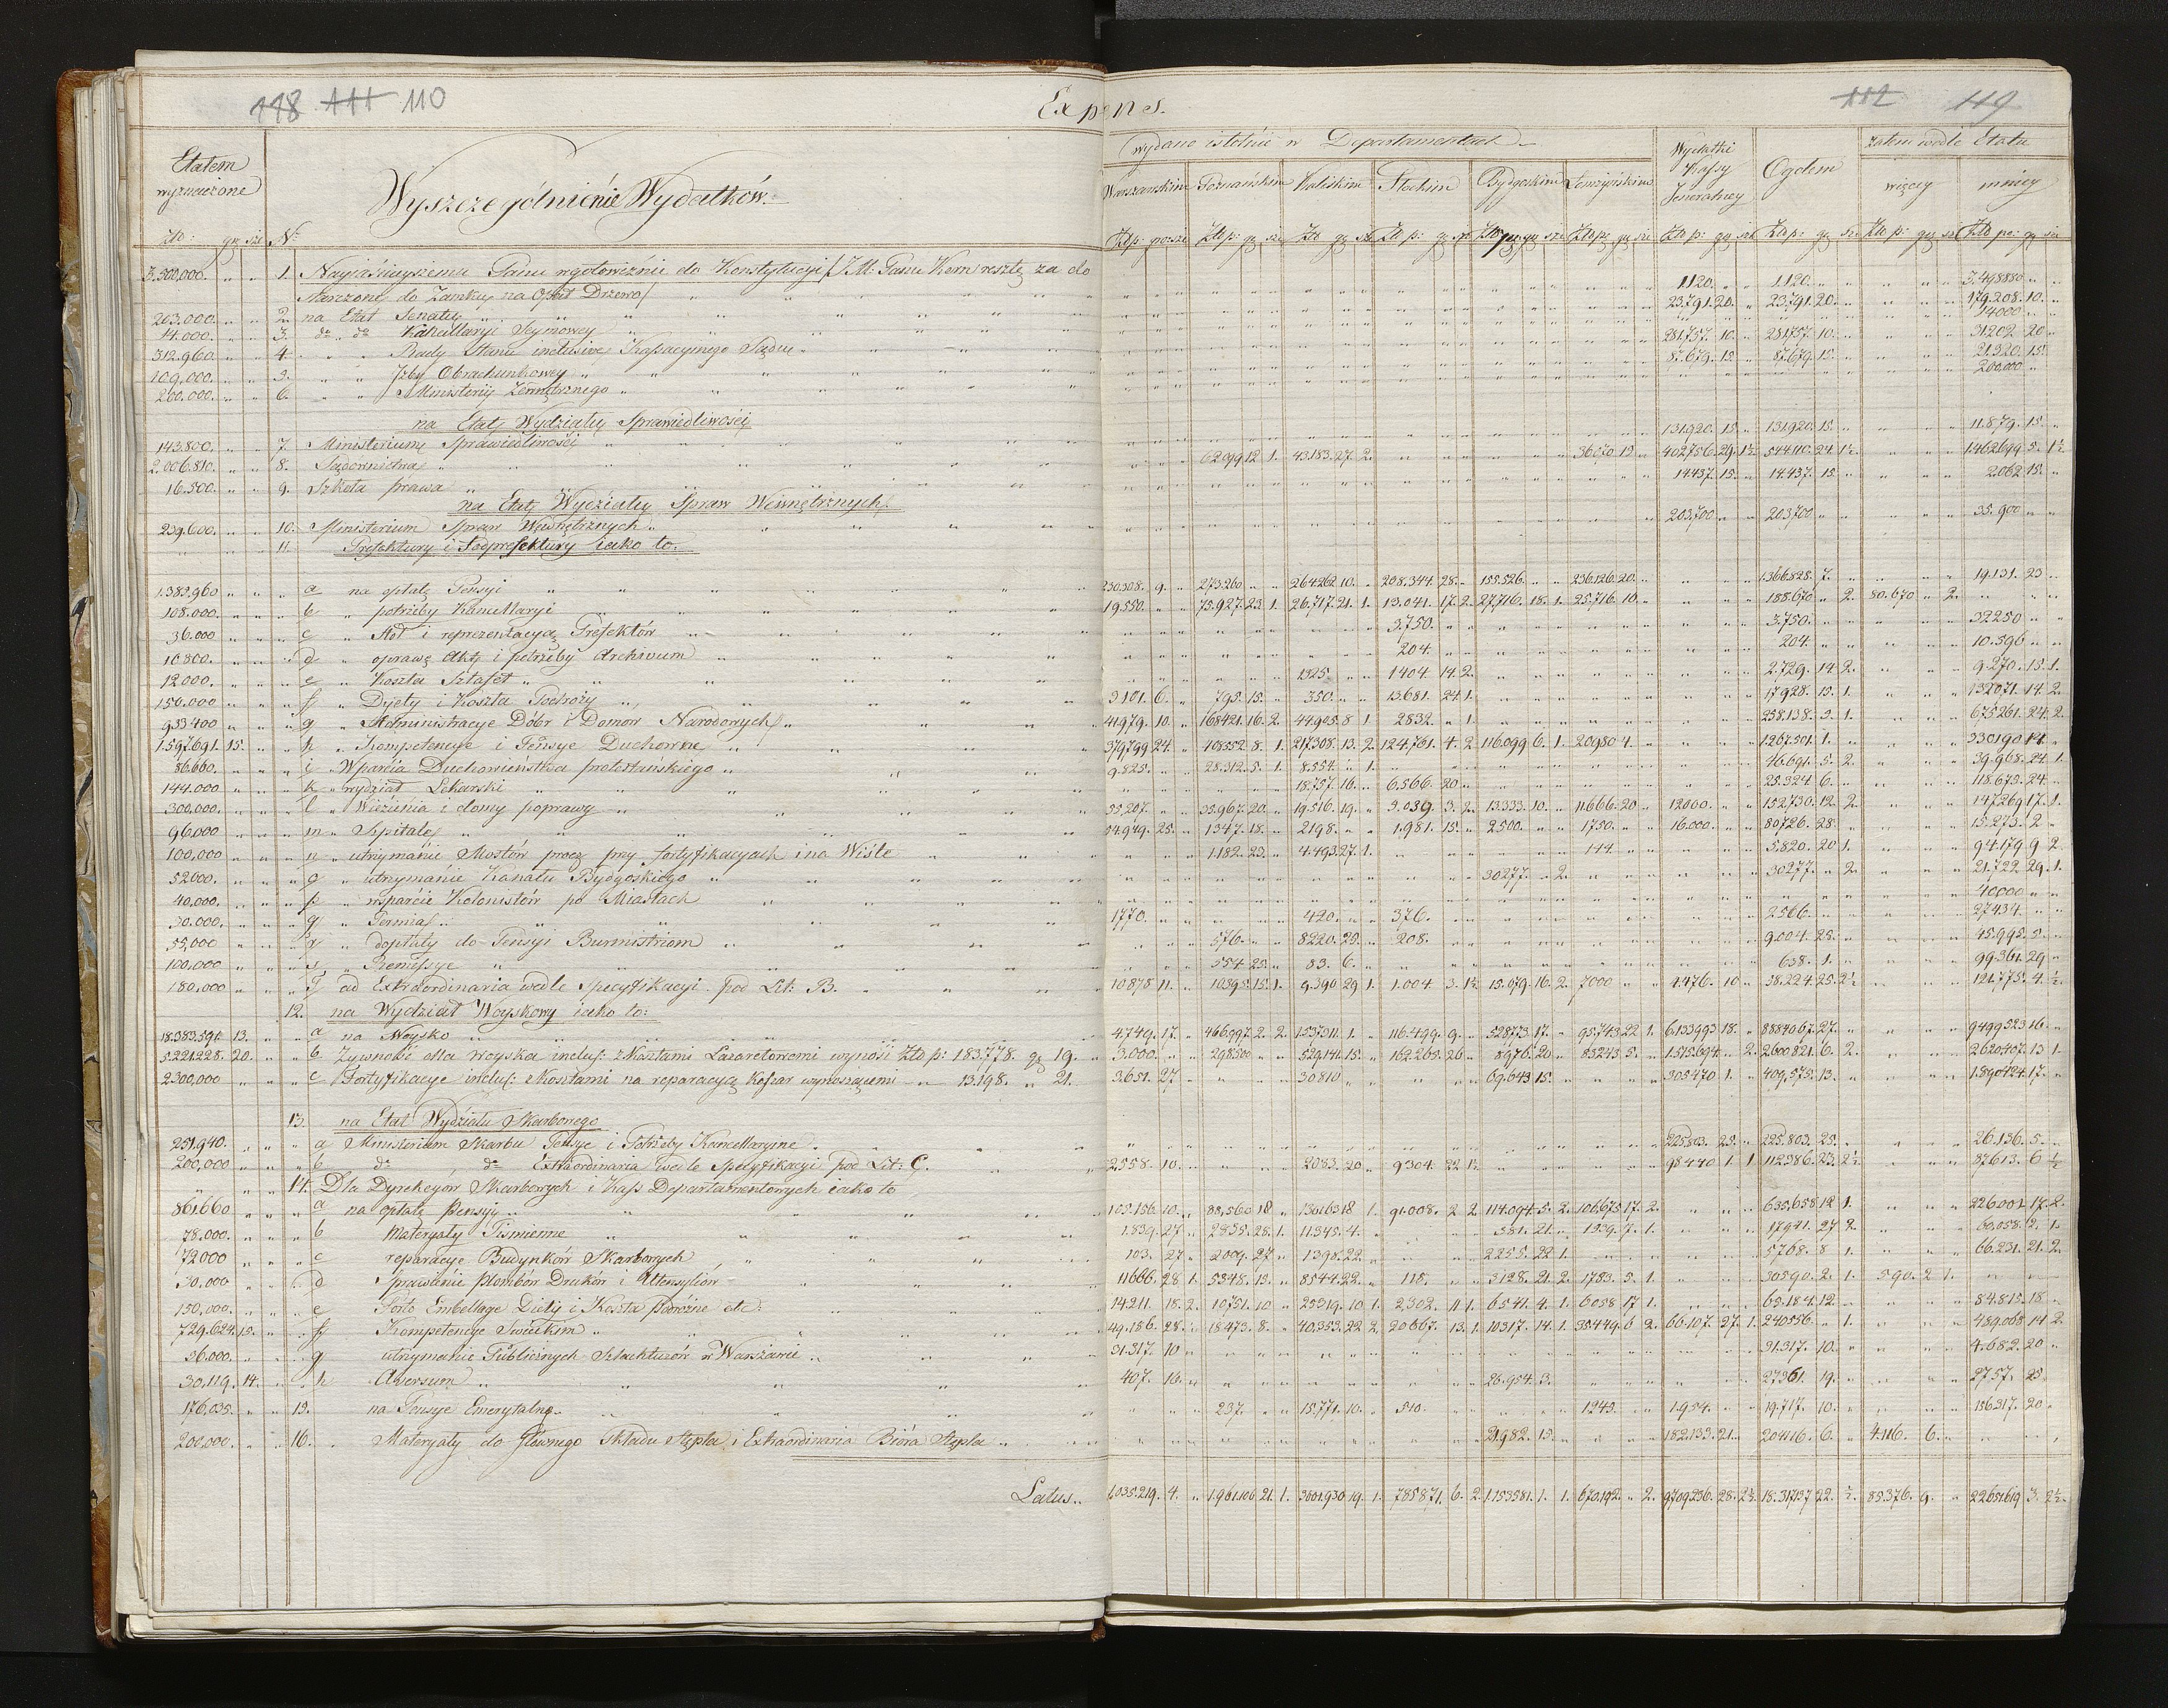 118 111 110
Expens.
112 119
Etatem wyznaczone
Wyszczególnienie Wydatków.
wydano istotnie w Departamentach
Wydatki Kassy Jeneralney
Ogolem
zatem wedle Etatu
Warszawskim Poznańskim Kaliskim Płockim Bydgoskim Łomżyńskim
więcey mniey
Zło: gr sze No
3.500,000. " " 1. Nayiaśnieyszemu Panu w gotowiźnie do Konstytucyi /J M: Panu Kern resztę za do 1120. " " 1120. " " 3.498880 " "
starczone do Zamku na Opał Drzewo/
203.000. " " 2. na Etat Senatu 23.791. 20. " 23.791. 20. " 179.208. 10. "
14.000. " " 3. do " do Kancellaryi Seymowey 14000 " "
312.960 " " 4. " " Rady Stanu inclusive Kassacyinego Sądu 281.757. 10. " 281.757. 10. " 31.202. 20 "
109,000. " " 5. " " Izby Obrachunkowey 87.679. 15. " 87.679. 15. " 21.320. 15. "
200.000. " " 6. " " Ministeryi Zewnętrznego 200,000 "
na Etat Wydziału Sprawiedliwości
143.800. " " 7. Ministerium Sprawiedliwości 131.920. 15. " 131.920. 15. " 11.879. 15. "
2.006.810. " " 8. Sądownictwa 62.099. 12 1. 43.183. 27. 2. 36.070. 15 " 402.756. 29. 1½ 544.110. 24. 1½ 1.462.699. 5. 1½
16.500. " " 9. Szkoła prawa 14.437. 15. " 14.437. 15. " 2.062. 15. "
na Etat Wydziału Spraw Wewnętrznych
239.600. " " 10. Ministerium Spraw Wewnętrznych 203.700 " " 203.700 " " 35.900 " "
" " " 11. Prefektury i Podprefektury iako to.
1.385,960 " " a na opłatę Pensyi 230.308. 9. " 273.260. " " 264.262. 10. " 208.344. 28. " 155.526. " " 236.126. 20. " 1.366.828. 7. " 19.131. 23 "
108.000. " " b " potrzeby Kancellaryi 19.550. " " 75.927. 23. 1. 26.717. 21. 1. 13.041. 17. 2. 27.716. 18. 1. 25.716. 10. " 188.670 " 2. 80.670 " 2.
36.000 " " c " Stół i reprezentacyą Prefektów 3.750. " " 3.750. " " 32.250 " "
10.800. " " d " oprawę Akt i potrzeby Archivum 204. " " 204. " " 10.596 " "
12000. " " e " Koszta Sztafet 1325. " " 1404. 14. 2. 2.729. 14. 2. 9.270. 15. 1.
150.000. " " f " Dyety i Koszta Podroży 3101. 6. " 795. 15. " 350. " " 13.681. 24. 1. 17.928. 15. 1. 132.071. 14. 2
933.400 " " g " Administracye Dóbr i Domów Narodowych 41.979. 10. " 168.421. 16. 2. 44.905. 8. 1. 2832. " 1. 258.138. 5. 1. 675.261. 24. 2.
1.597.691. 15. " h " Kompetencye i Pensye Duchowne 379.799. 24. " 408.552. 8. 1. 217.308. 13. 2. 124.761. 4. 2. 116.099. 6. 1. 20.980. 4. " 1.267.501. 1. " 330.190. 14. "
86.660. " " i " Wparcia Duchowieństwa protestańskiego 9.825. " " 28.312. 5. 1. 8.554. " 1. 46.691. 5. 2. 39.968. 24. 1.
144.000 " " k " wydział Lekarski 18.757. 16. " 6.566. 20. " 25.324. 6. " 118.675. 24. "
300,000. " " l " Więzienia i domy poprawy 35.207. " " 35.967. 20. " 19.516. 19. " 5.039. 3. 2. 13.333. 10. " 11.666. 20. " 12000. " " 152.730. 12. 2. 147.269. 17. 1.
96000 " " m " Szpitale 54.949. 25. " 1.347. 18. " 2198. " " 1.981. 15. " 2500. " " 1750. " " 16.000. " " 80.726. 28. " 15.273. 2 "
100,000 " " n " utrzymanie Mostów procz przy fortyfikacyach i na Wiśle 1.182. 23. " 4.493. 27. 1. 144. " " 5.820. 20. 1. 94.179. 9. 2.
52000. " " o " utrzymanie Kanału Bydgoskiego 30.277. " 2. 30.277. " 2. 21.722. 29. 1.
40,000. " " p " wsparcie Kolonistów po Miastach 40000 " "
30.000. " " q " Premia 1770. " " 420. " " 376. " " 2566. " " 27.434. " "
55,000 " " r " dopłaty do Pensyi Burmistrzom 576. " " 8220. 25. " 208. " " 9.004. 25. " 45.995. 5. "
100,000 " " s " Remissye 554. 25. " 83. 6. " 638. 1. " 99.361. 29. "
180,000 " " t ad Extraordinaria wedle Specyfikacyi pod Lit: B. 10.878. 11. " 10.395. 15. 1. 9.390. 29. 1. 1.004. 3. 1½ 15.079. 16. 2. 7000 " " 4.476. 10 " 58.224. 25. 2½ 121.775. 4. ½
12. na Wydział Woyskowy iako to:
18.383.591. 13. " a na Woysko 4.749. 17. " 466.997. 2. 2. 1.537.311. 1. " 116.499. 9. " 528.773. 17. " 95.743. 22. 1. 6.133.993. 18. " 8.884.067. 27. " 9.499.523. 16. "
5.221.228. 20. " b Żywność dla woyska inclus: z Kosztami Lazaretowemi wynosi Zło p: 183,778. gr 19. 3.000. " " 298.500 " " 529.141. 15. " 162.265. 26 " 8976. 20 " 83.243. 5. " 1.515.694. " 2. 2.600.821. 6. 2. 2.620.407. 13. 1.
2.300,000 " " c Fortyfikacye inclus: z Kosztami na reparacyą Koszar wynoszącemi " 13.198. " 21. 3.651. 27. " 30810. " " 69.643. 15. " 305.470. 1. " 409.575. 13. " 1.890.424. 17. "
13. na Etat Wydziału Skarbowego
251.940. " " a Ministerium Skarbu Pensye i Potrzeby Kancellaryine 225.803. 25. " 225.803. 25. " 26.136. 5. "
200,000 " " b do , do Extraordinaria wedle Specyfikacyi pod Lit: C. 2558. 10. " 2083. 20 " 9304. 22. 1½ 98.440. 1. 1. 112.386. 23. 2½ 87.613. 6 ½
" " " 14. Dla Dyrekcyów Skarbowych i Kass Departamentowych iako to
861.660 " " a na opłatę Pensyi 105.156. 10. " 88.560. 18. " 130.163. 18. 1. 91.008. 2. 2. 114.094. 5. 2. 106.675. 17. 2. 635.658. 12. 1. 226.001. 17. 2.
78.000. " " b Materyały Piśmienne 1.839. 27. " 2835. 28. 1. 11.345. 4. " 581. 21. " 1339. 7. 1. 17.941. 27. 2. 60.058. 2. 1.
72000 " " c reparacye Budynków Skarbowych 103. 27. " 2009. 27. " 1.398. 22. " 2255. 22. 1. 5.768. 8. 1. 66.231. 21. 2.
30,000 " " d Sprawienie plombów Druków i Utensyliów 11666. 28. 1. 5348. 13. " 8544. 22. " 118. " " 3128. 21. 2. 1783. 5. 1. 30.590. 2. 1. 590. 2. 1.
150,000. " " e Porto Emballage Diety i Koszta Podrożne etc: 14.211. 18. 2. 10.751. 10 " 25.319. 10. 1. 2.302. 11. 1. 6.541. 4. 1. 6058. 17. 1. 65.184. 12. " 84.815. 18 "
729.624. 15. " f Kompetencye Swieckim 49.186. 28. " 18.473. 8. " 40.353. 22. 2. 20.667. 13. 1. 10.317. 14. 1. 35.449. 6. 2. 66.107. 27. 1. 240556. " 1. 489.068. 14. 2.
36.000. " " g utrzymanie Publicznych Szlachtuzów w Warszawie 31.317. 10 " 31.317. 10. " 4.682. 20 "
30,119. 14. " h Aversum 407. 16. " 26.954. 3. " 27361. 19. " 2757. 25. "
176,035. " " 15. na Pensye Emerytalne 237. " " 15.771. 10. " 510. " " 1245. " " 1.954. " " 19.717. 10. " 156.317. 20. "
200,000. " " 16. Materyały do głównego składu Stępla i Extraordinaria Bióra Stępla 21.982. 15. " 182.133. 21. " 204.116. 6. " 4.116. 6. "
Latus.. 1,035.219. 4. " 1.961.106. 21. 1. 3.001.930. 19. 1. 785.871. 6. 2. 1.153.581. 1. 1. 670.192. " 2. 9.709.236. 28. 2½ 18.317.137. 22. ½ 85.376. 9. " 22.651.619. 3. 2½